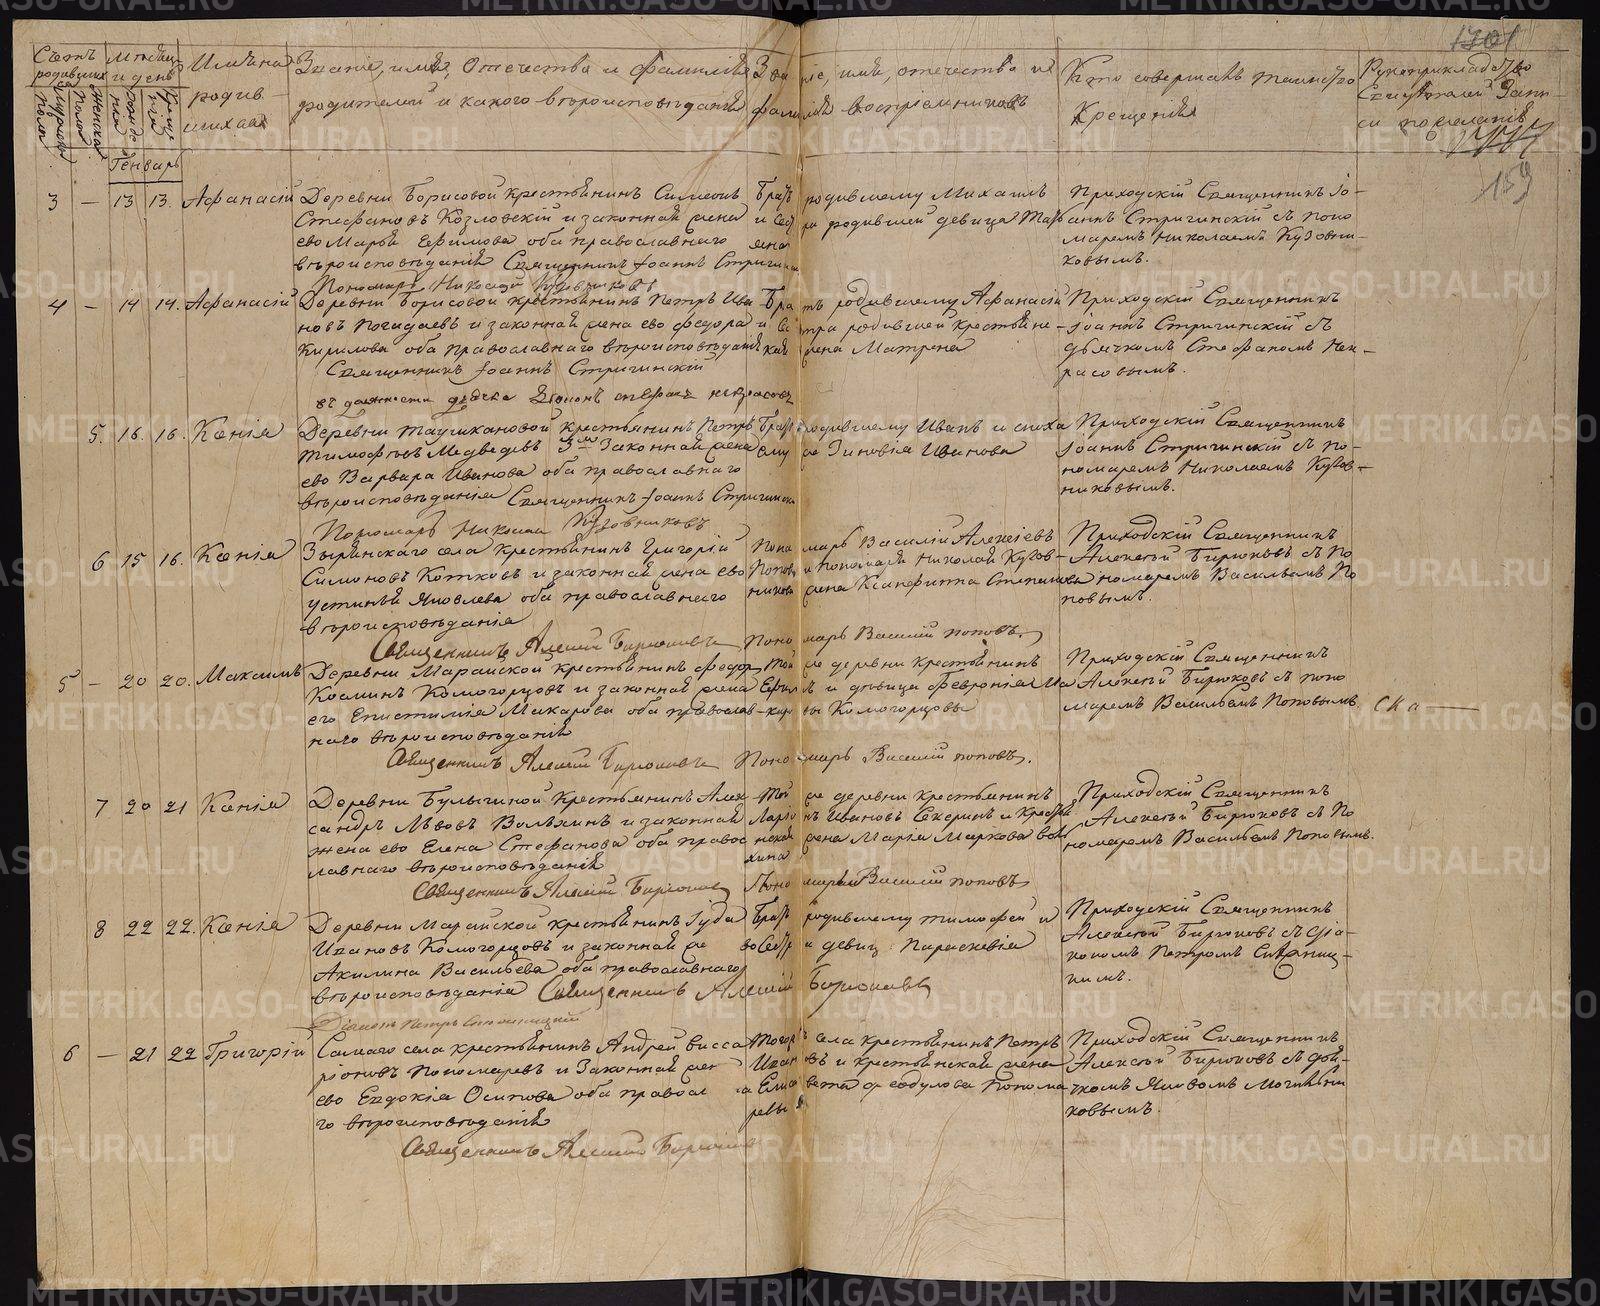 1701
Счетъ родившихся
Мужеска пола
Женска пола
Мѣсяцъ и день
рожденія
крещенія
Имѣна родившихся
Званіе, имя, отечество и фамилія родителей и какого вѣроисповѣданія
Званіе, имя, отечество и фамилія воспріемниковъ
Кто совершалъ таинство Крещенія
Рукоприкладство Свидѣтелей записи по желанію
159
Генварь
3 — 13 13. Афанасій
Деревни Борисовой крестьянинъ Симеонъ
Стефановъ Козловскій и законная жена
ево Марья Ефимова оба православнаго
вѣроисповѣданія Священникъ Іоаннъ Стригинскій
Пономарь Николай Кузовниковъ
Братъ родившему Михаилъ
и сестра родившей девица Тат
яна
Приходскій Священникъ Іо-
аннъ Стригинскій съ поно
маремъ Николаемъ Кузовни-
ковымъ.
4 — 14 14. Афанасій
Деревни Борисовой крестьянинъ Петръ Ива
новъ Погидаевъ и законная жена ево Федора
Кирилова оба православнаго вѣроисповѣданія
Священникъ Іоаннъ Стригинскій
въ должности дьячка Стефанъ Некрасовъ
Братъ родившему Афанасій
и сестра родившей крестьянс-
кая жена Матрена
Приходскій Священникъ
Іоаннъ Стригинскій съ
дьячкомъ Стефаномъ Нек-
расовымъ.
5. 16. 16. Ксенія
Деревни Таушкановой крестьянинъ Петръ
Тимофѣевъ Медведевъ Законная жена
ево Варвара Иванова оба православнаго
вѣроисповѣданія Священникъ Іоаннъ Стригинскій
Пономарь Николай Кузовниковъ
Братъ родившему Иванъ и сноха
ему же Зиновія Иванова
Приходскій Священникъ
Іоаннъ Стригинскій съ по-
номаремъ Николаемъ Кузов-
никовымъ.
6 15 16. Ксенія
Зырянскаго села крестьянинъ Григорій
Симоновъ Котковъ и законная жена ево
Устинья Яковлева оба православнаго
вѣроисповѣданія
Священникъ Алексій Бирюковъ Пономарь Василій Поповъ.
Пономарь Василій Алексіевъ
Поповъ и пономаря Николая Кузов-
никова жена Ксанфипна Степанова
Приходскій Священникъ
Алексѣй Бирюковъ съ По
номаремъ Васильемъ По
повымъ.
5 — 20 20. Максимъ
Деревни Марайской крестьянинъ Федор
Космичъ Комогорцовъ и законная жена
его Епистимія Макарова оба православ-
наго вѣроисповѣданія
Священникъ Алексій Бирюковъ Пономарь Василій Поповъ.
Той же деревни крестьянинъ
Ефимъ и дѣвица Февронія Ма
каровы Комогорцовы
Приходскій Священникъ
Алексѣй Бирюковъ съ поно
маремъ Васильемъ Поповымъ.
7 20 21 Ксенія
Деревни Булыгиной Крестьянинъ Алек
сандръ Львовъ Волхинъ и законная
жена ево Елена Стефанова оба правос
лавнаго вѣроисповѣданія
Священникъ Алексій Бирюковъ Пономарь Василій Поповъ
Той же деревни крестьянинъ
Ларіонъ Ивановъ Секеринъ и крестья
нская жена Марія Маркова Вол
хина
Приходскій Священникъ
Алексѣй Бирюковъ съ По
номаремъ Васильемъ Поповымъ.
8 22 22. Ксенія
Деревни Марайской крестьянинъ Іуда
Ивановъ Комогорцовъ и законная же
Акилина Васильева оба православнаго
вѣроисповѣданія Священникъ Алексій Бирюковъ
Діаконъ Петръ
Братъ родившему Тимофей и
во сестра девиц: Параскевія
Приходскій Священникъ
Алексѣй Бирюковъ съ діа-
кономъ Петромъ
6 — 21 22 Григорій
Самаго села крестьянинъ Андрей Висса
ріоновъ Пономаревъ и Законная жен
ево Евдокія Осипова оба правосл
го вѣроисповѣданія
Священникъ Алексій Бирюковъ
Тогожъ села крестьянинъ Петръ
Ивановъ и крестьянская жена
Елисавета Федулова Понома
ревы
Приходскій Священникъ
Алексѣй Бирюковъ съ дья-
чкомъ Яковомъ Могильни
ковымъ.
METRIKI.GASO-URAL.RU